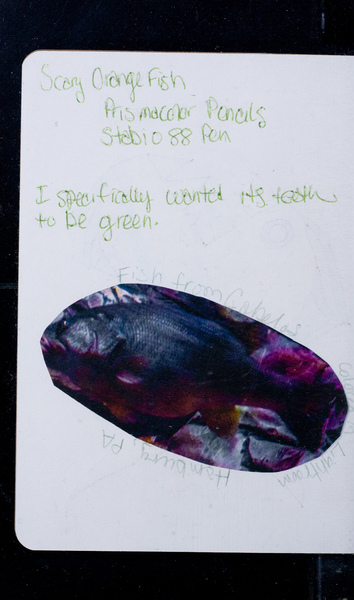 Scary Orange Fish
Prismacolor Pencils
Stabio 88 Pen
I specifically wanted its teeth
to be green.
Fish from Cabelas
Hamburg, PA